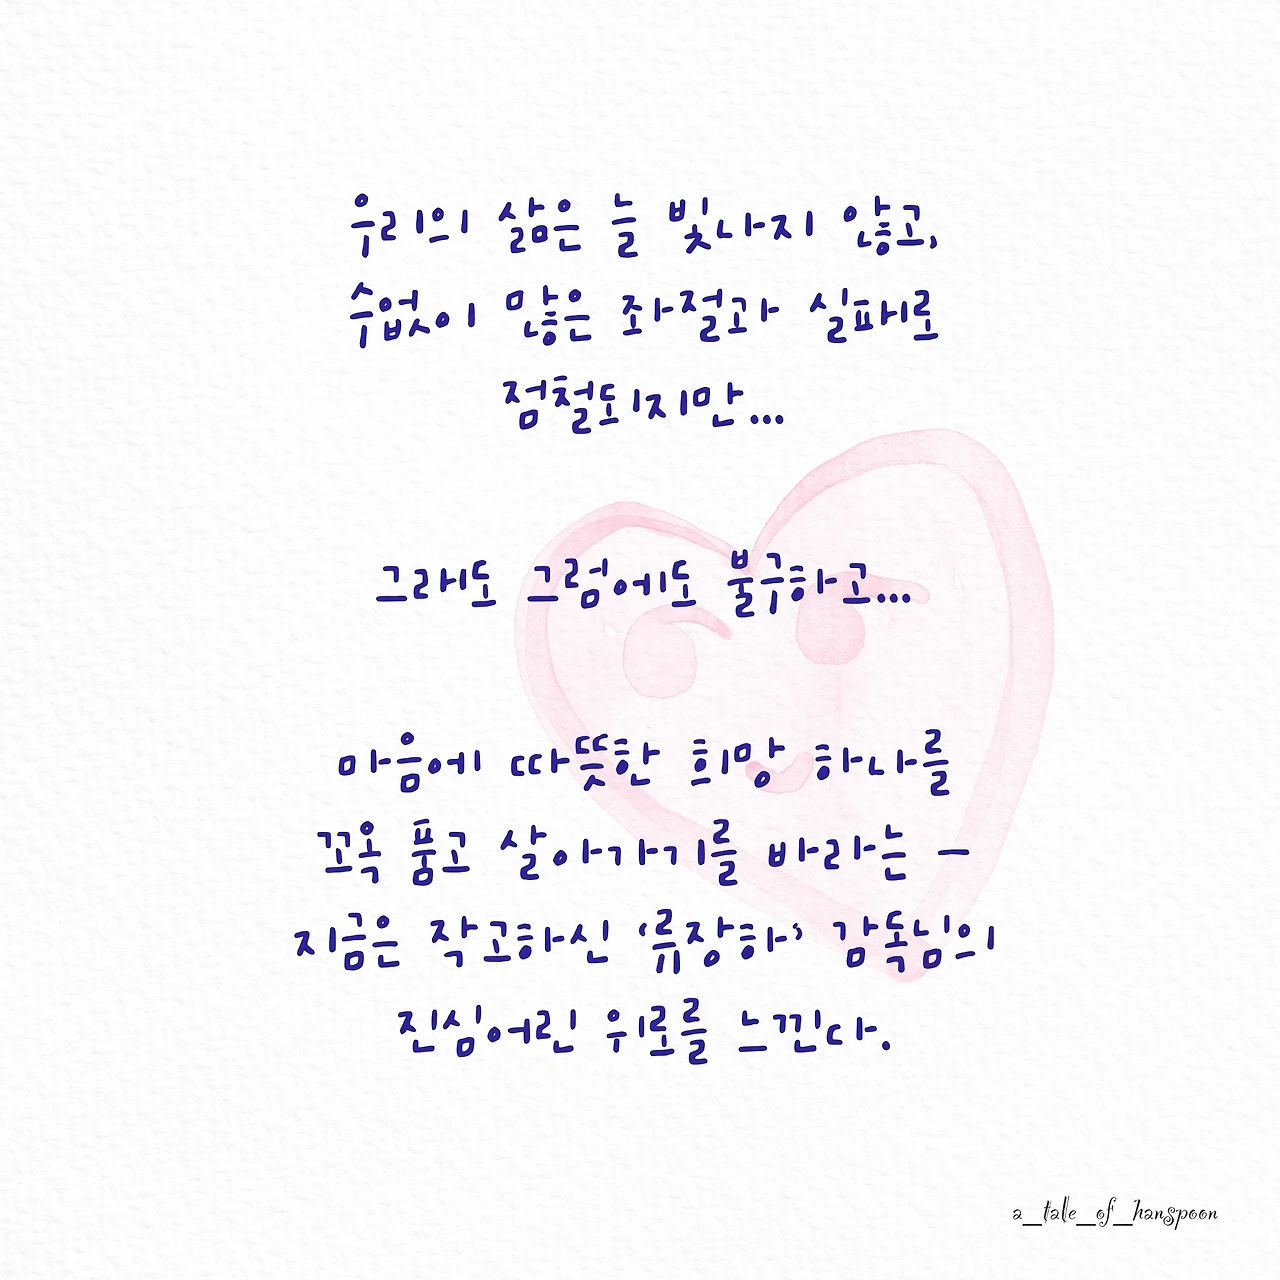 우리의 삶은 늘 빛나지 않고,
수없이 많은 좌절과 실패로
점철되지만...
그래도 그럼에도 불구하고...
마음에 따뜻한 희망 하나를
꼬옥 품고 살아가기를 바라는 –
지금은 작고하신 '류장하' 감독님의
진심어린 위로를 느낀다.
a_tale_of_hanspoon